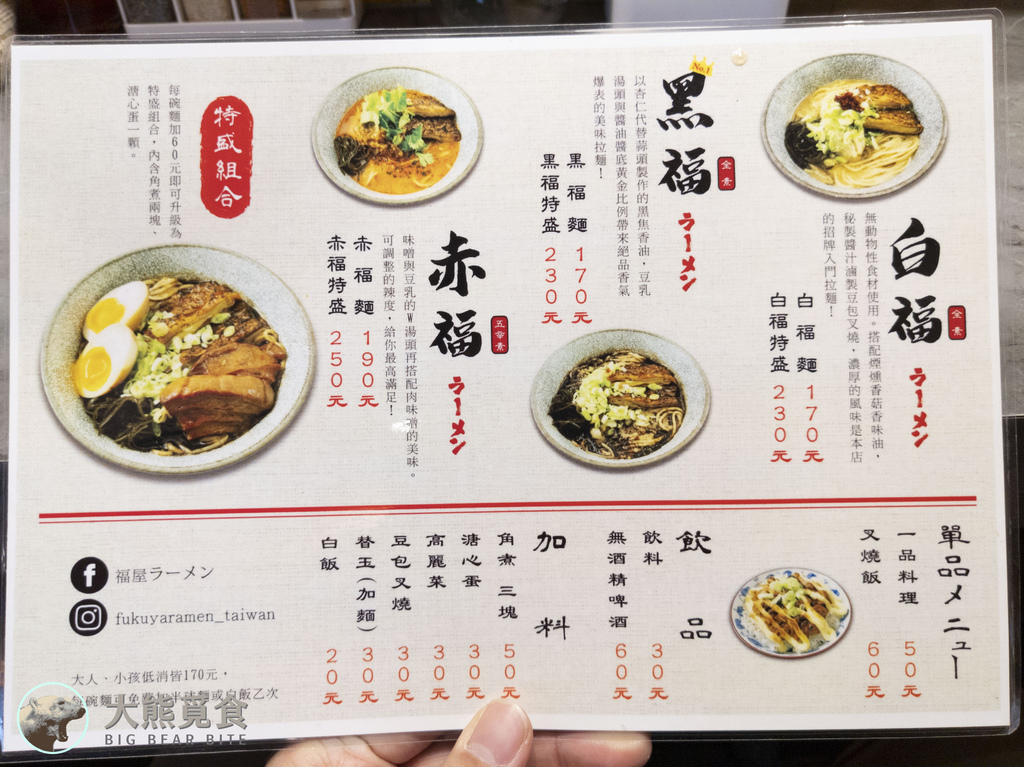 白福
全素
ラーメン
無動物性食材使用。搭配煙燻香菇香味油，
秘製醬汁滷製豆包叉燒，濃厚的風味是本店
的招牌入門拉麵！
白福麵 170元
白福特盛 230元
No.1
黑福
全素
ラーメン
以杏仁代替蒜頭製作的黑焦香油，豆乳
湯頭與醬油醬底黃金比例帶來絕品香氣
爆表的美味拉麵！
黑福麵 170元
黑福特盛 230元
赤福
五辛素
ラーメン
味噌與豆乳的W湯頭再搭配肉味噌的美味。
可調整的辣度，給你最高滿足！
赤福麵 190元
赤福特盛 250元
特盛組合
每碗麵加60元即可升級為
特盛組合，內含角煮兩塊、
溏心蛋一顆。
單品メニュー
一品料理 50元
叉燒飯 60元
飲品
飲料 30元
無酒精啤酒 60元
加料
角煮 三塊 50元
溏心蛋 30元
高麗菜 30元
豆包叉燒 30元
替玉(加麵) 30元
白飯 20元
福屋ラーメン
fukuyaramen_taiwan
大人、小孩低消皆170元，
每碗麵可免費加半球麵或白飯乙次
大熊覓食
BIG BEAR BITE